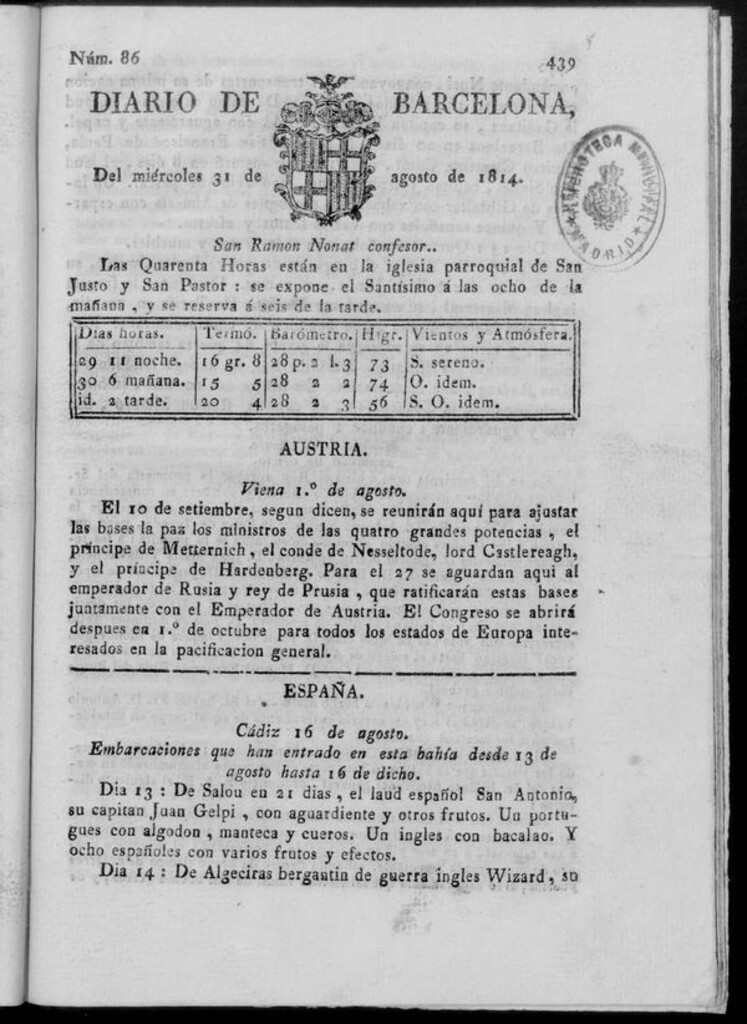 Núm. 86
439
DIARIO DE BARCELONA,
Del miércoles 31 de agosto de 1814.
HEMEROTECA MUNICIPAL
MADRID
San Ramon Nonat confesor..
Las Quarenta Horas están en la iglesia parroquial de San
Justo y San Pastor : se expone el Santísimo á las ocho de la
mañana , y se reserva á seis de la tarde.
Dias horas. Termó. Barómetro. Higr. Vientos y Atmósfera.
29 11 noche. 16 gr. 8 28 p. 2 l. 3 73 S. sereno.
30 6 mañana. 15 5 28 2 2 74 O. idem.
id. 2 tarde. 20 4 28 2 3 56 S. O. idem.
AUSTRIA.
Viena 1.º de agosto.
El 10 de setiembre, segun dicen, se reunirán aquí para ajustar
las bases la paz los ministros de las quatro grandes potencias , el
príncipe de Metternich , el conde de Nesseltode, lord Castlereagh,
y el príncipe de Hardenberg. Para el 27 se aguardan aqui al
emperador de Rusia y rey de Prusia , que ratificarán estas bases
juntamente con el Emperador de Austria. El Congreso se abrirá
despues en 1.º de octubre para todos los estados de Europa inte-
resados en la pacificacion general.
ESPAÑA.
Cádiz 16 de agosto.
Embarcaciones que han entrado en esta bahía desde 13 de
agosto hasta 16 de dicho.
Dia 13 : De Salou en 21 dias , el laud español San Antonio,
su capitan Juan Gelpi , con aguardiente y otros frutos. Un portu-
gues con algodon , manteca y cueros. Un ingles con bacalao. Y
ocho españoles con varios frutos y efectos.
Dia 14 : De Algeciras bergantin de guerra ingles Wizard, su